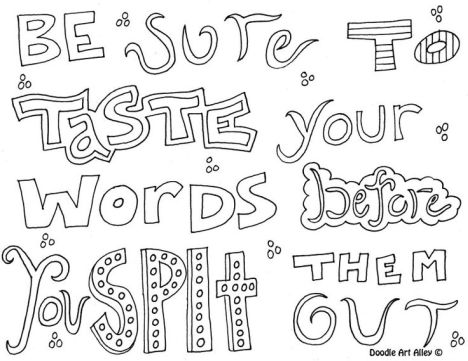 BE SURE TO
TaSTE your
WORDS before
You SPIt THEM
OUT
Doodle Art Alley ©